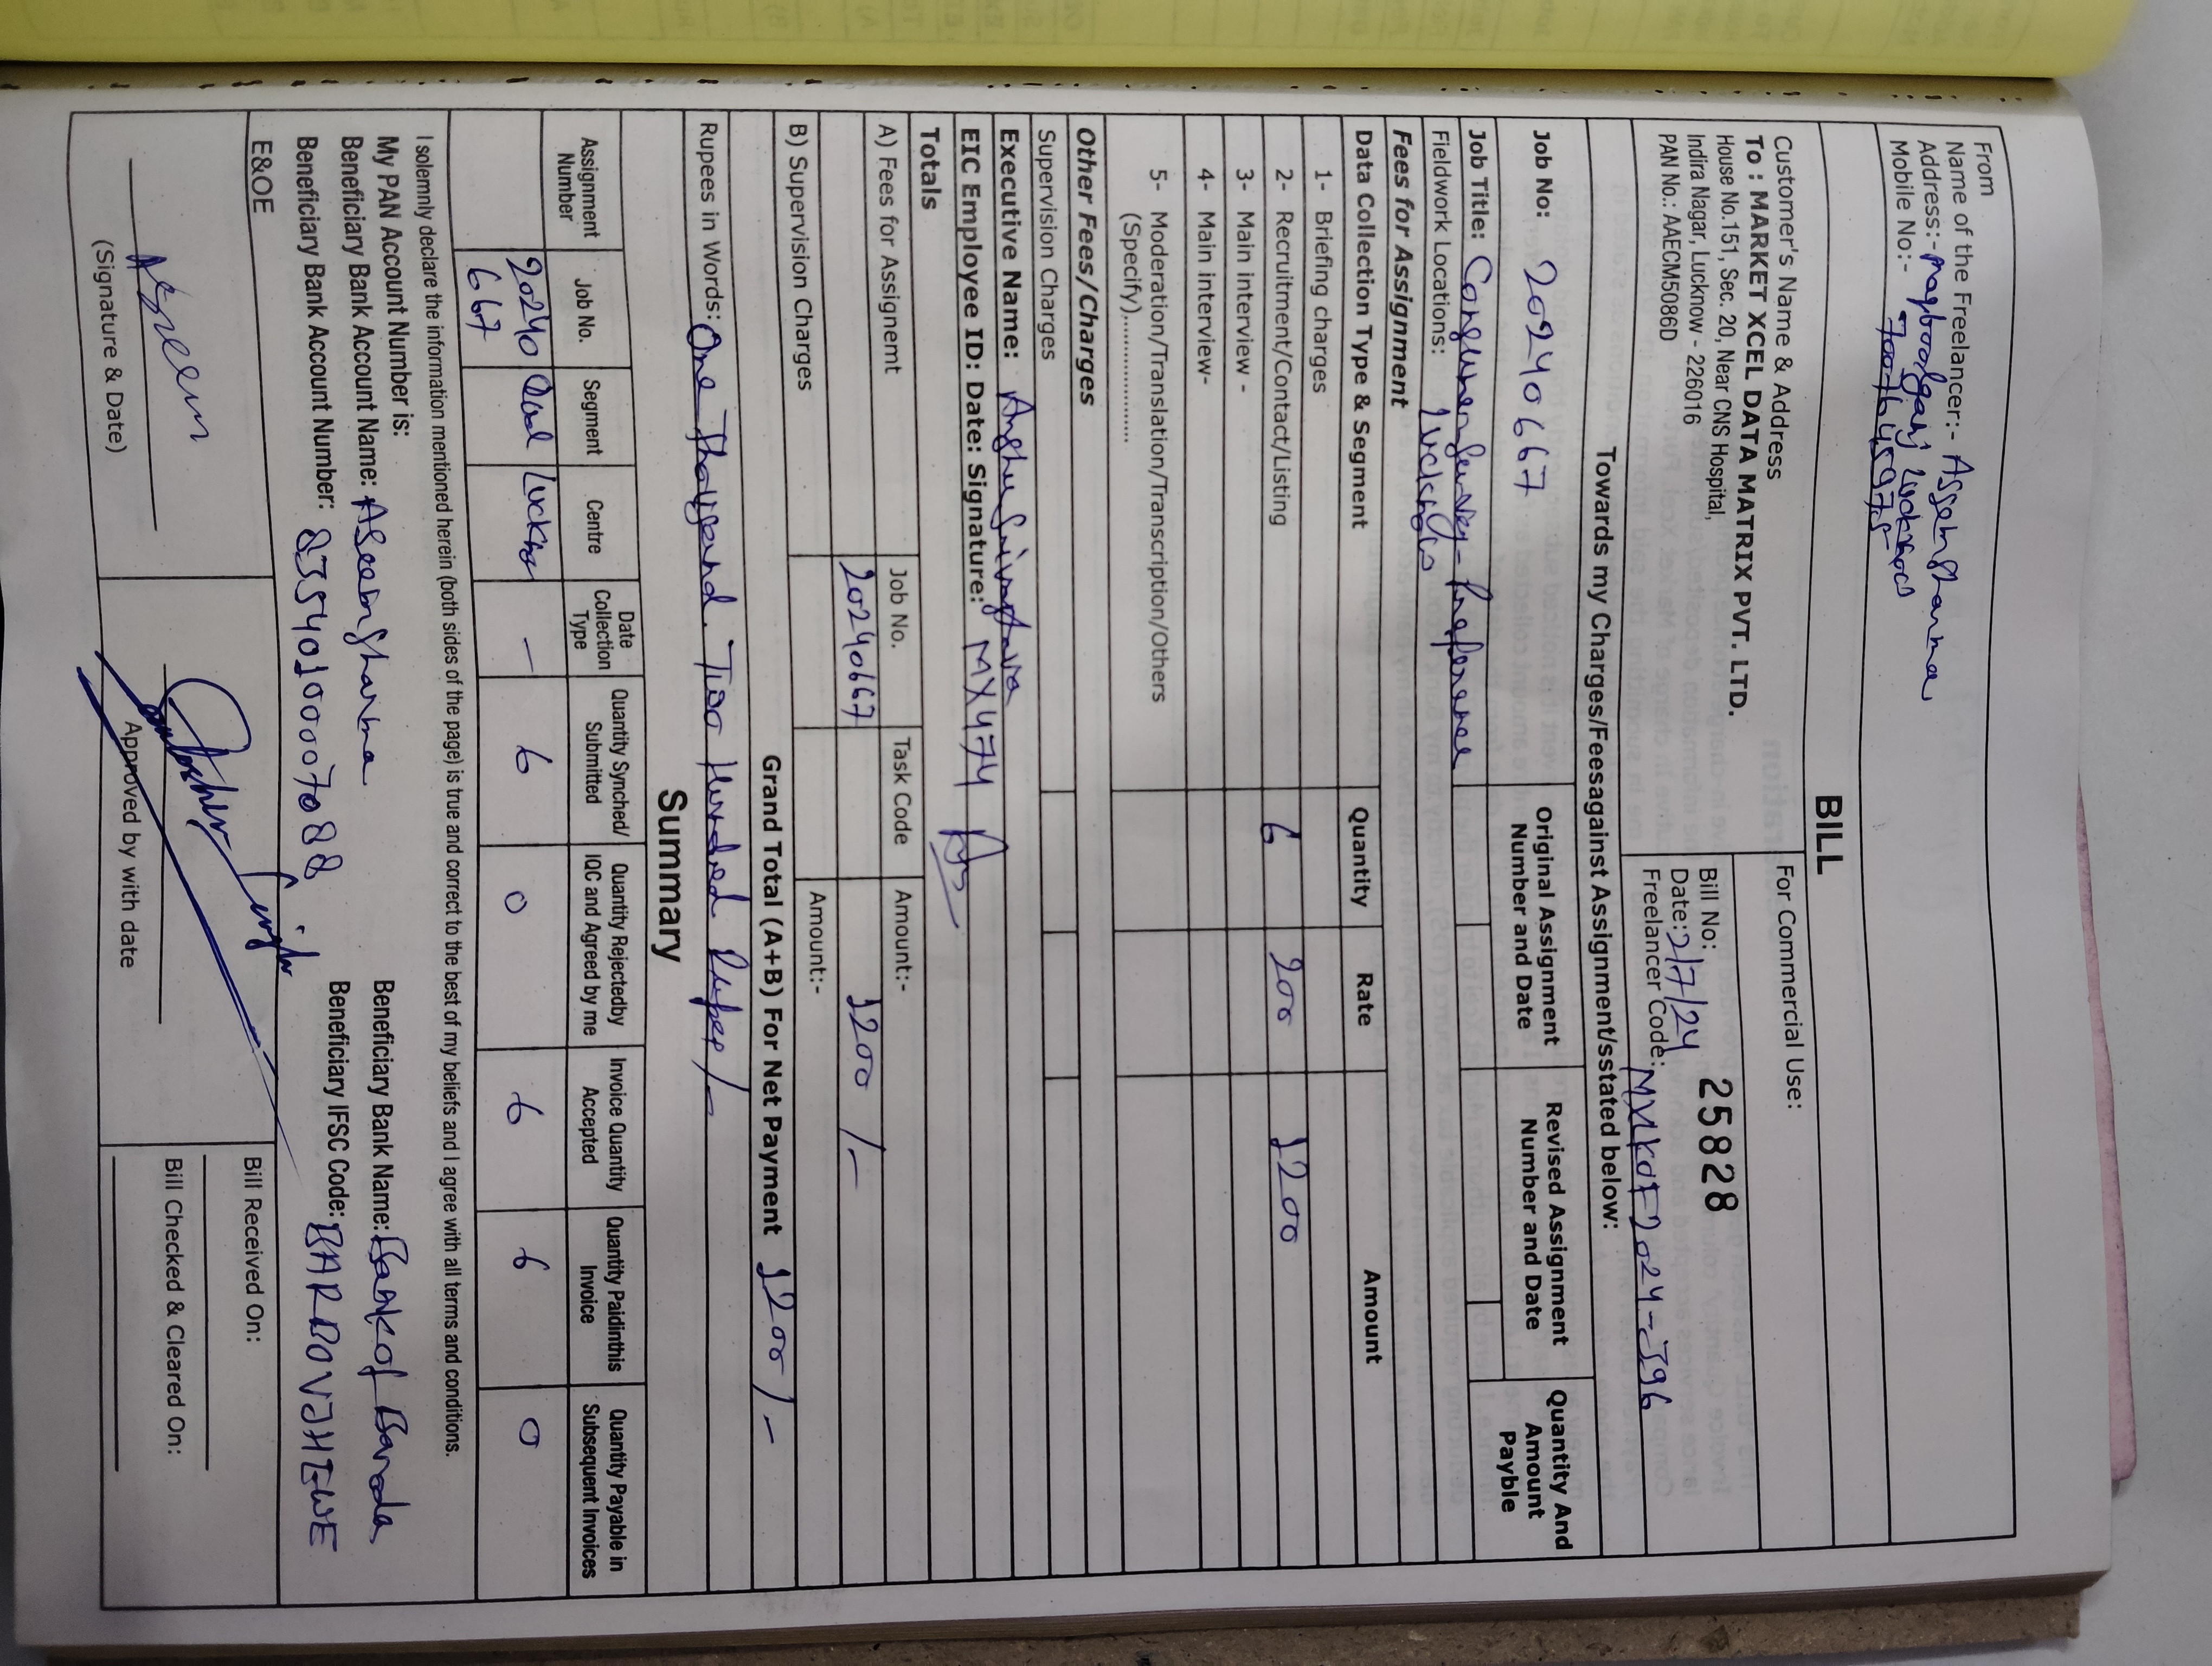 From
Name of the Freelancer:- Aseem Sharma
Address:- Maqboolganj Lucknow
Mobile No:-
BILL
Customer's Name & Address
To : MARKET XCEL DATA MATRIX PVT. LTD.
House No.151, Sec. 20, Near CNS Hospital,
Indira Nagar, Lucknow - 226016
PAN No.: AAECM5086D
For Commercial Use:
Bill No: 25828
Date: 2/7/24
Freelancer Code: MXLKOF2024-396
Towards my Charges/Feesagainst Assignment/sstated below:
Job No: 20240667
Original Assignment Number and Date
Revised Assignment Number and Date
Quantity And Amount Payble
Job Title: Consumer Survey - Preference
Fieldwork Locations: Lucknow
Fees for Assignment
Data Collection Type & Segment Quantity Rate Amount
1- Briefing charges
2- Recruitment/Contact/Listing 6 200 1200
3- Main interview -
4- Main interview-
5- Moderation/Translation/Transcription/Others
(Specify)..................
Other Fees/Charges
Supervision Charges
Executive Name: Anshu Srivastava
EIC Employee ID: Date: Signature: MX474
Totals
A) Fees for Assignemt Job No. Task Code Amount:-
20240667 1200/-
B) Supervision Charges Amount:-
Grand Total (A+B) For Net Payment 1200/-
Rupees in Words: One Thousand Two Hundred Rupee/-
Summary
Assignment Number Job No. Segment Centre Date Collection Type Quantity Synched/ Submitted Quantity Rejectedby IQC and Agreed by me Invoice Quantity Accepted Quantity Paidinthis Invoice Quantity Payable in Subsequent Invoices
20240 Lucknow - 6 0 6 6 0
667
I solemnly declare the information mentioned herein (both sides of the page) is true and correct to the best of my beliefs and I agree with all terms and conditions.
My PAN Account Number is:
Beneficiary Bank Account Name: Aseem Sharma
Beneficiary Bank Name: Bank of Baroda
Beneficiary Bank Account Number: 83540100007088
Beneficiary IFSC Code:
E&OE
Aseem
(Signature & Date)
Approved by with date
Bill Received On:
Bill Checked & Cleared On: